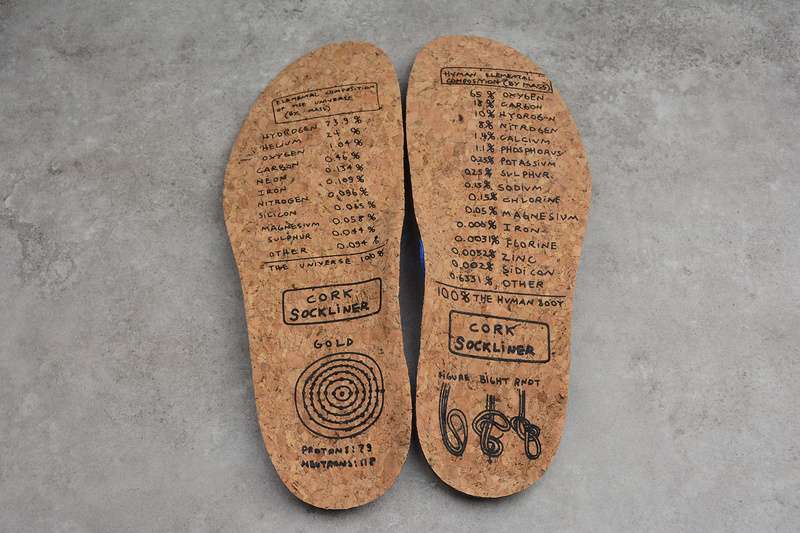 ELEMENTAL COMPOSITION
OF THE UNIVERSE
(BY MASS)
HYDROGEN 73.9 %
HELIUM 24 %
OXYGEN 1.04 %
CARBON 0.46 %
NEON 0.134 %
IRON 0.109 %
NITROGEN 0.096 %
SILICON 0.065 %
MAGNESIUM 0.058 %
SULPHUR 0.044 %
OTHER 0.094 %
THE UNIVERSE 100%
CORK
SOCKLINER
GOLD
PROTONS: 79
NEUTRONS: 118
HUMAN ELEMENTAL
COMPOSITION (BY MASS)
65 % OXYGEN
18 % CARBON
10 % HYDROGEN
3 % NITROGEN
1.4 % CALCIUM
1.1 % PHOSPHORUS
0.25 % POTASSIUM
0.25 % SULPHUR
0.15 % SODIUM
0.15 % CHLORINE
0.05 % MAGNESIUM
0.006 % IRON
0.0031 % FLORINE
0.0032 % ZINC
0.002 % SIDICON
0.6331 % OTHER
100% THE HUMAN BODY
CORK
SOCKLINER
FIGURE BIGHT KNOT